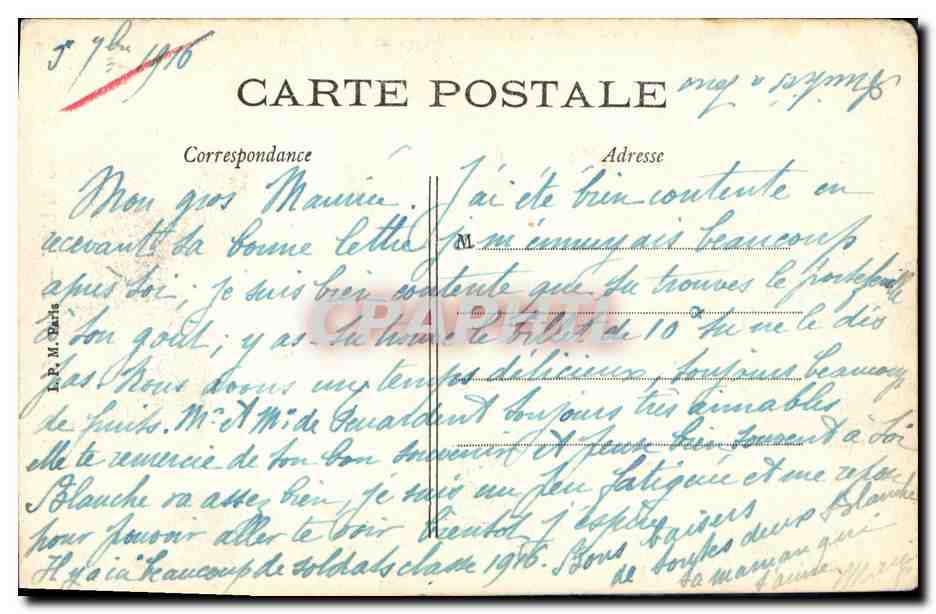 5 7bre 1916
CARTE POSTALE
Correspondance
Adresse
Mon gros Maurice. J'ai été bien contente en
recevant ta bonne lettre je m'ennuyais beaucoup
M
après toi; je suis bien contente que tu trouves le portefeuille
à ton goût; y as-tu trouvé le billet de 10 tu ne le dis
pas. Nous avons un temps délicieux, toujours beaucoup
de fruits. Mr et Me de toujours très aimables
Elle te remercie de ton bon souvenir et pense bien souvent à toi
Blanche va assez bien, je suis un peu fatiguée et me repose
pour pouvoir aller te voir bientôt j'espère
Il y a ici beaucoup de soldats classe 1916. Bons baisers
de toutes deux Blanche
ta maman qui
t'aime
L. P. M. Paris
CPAPHIL